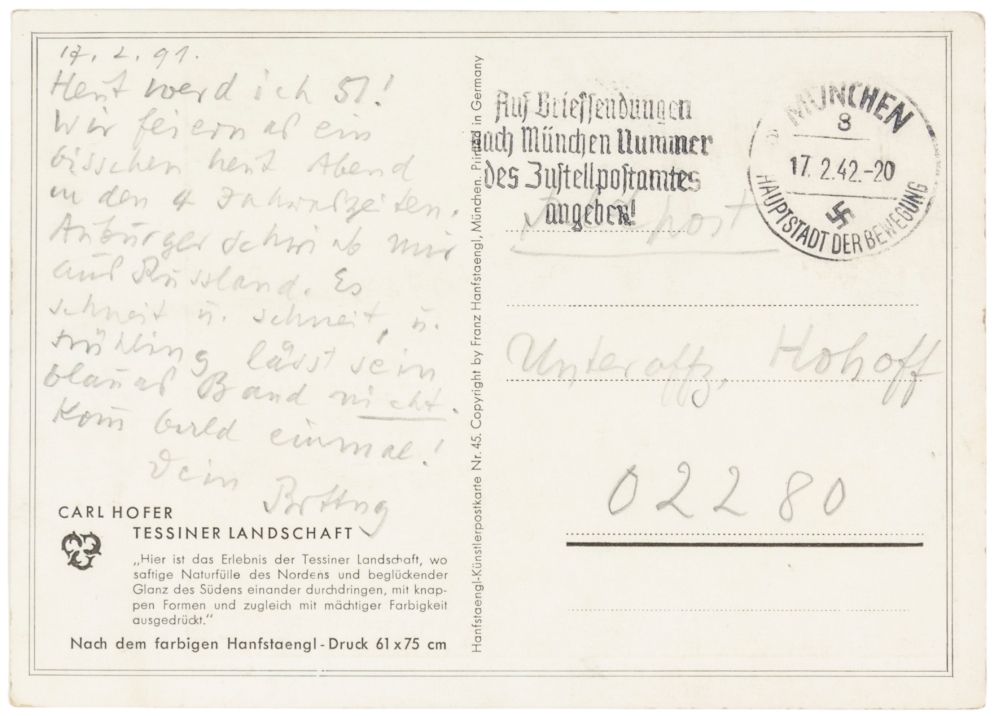 17. 2. 91.
Heut werd ich 51!
Wir feiern es ein
bisschen heut Abend
in den 4 Jahreszeiten.
schrieb mir
aus Russland. Es
schneit u. schneit, u.
Frühling lässt sein
blaues Band nicht.
Kom bald einmal!
Dein
CARL HOFER
TESSINER LANDSCHAFT
„Hier ist das Erlebnis der Tessiner Landschaft, wo
saftige Naturfülle des Nordens und beglückender
Glanz des Südens einander durchdringen, mit knap-
pen Formen und zugleich mit mächtiger Farbigkeit
ausgedrückt.“
Nach dem farbigen Hanfstaengl-Druck 61x75 cm
Hanfstaengl-Künstlerpostkarte Nr. 45. Copyright by Franz Hanfstaengl, München. Printed in Germany
Auf Briefsendungen
nach München Nummer
des Zustellpostamtes
angeben!
MÜNCHEN
8
17.2.42.-20
HAUPTSTADT DER BEWEGUNG
Feldpost
Unteroffz. Hohoff
02280